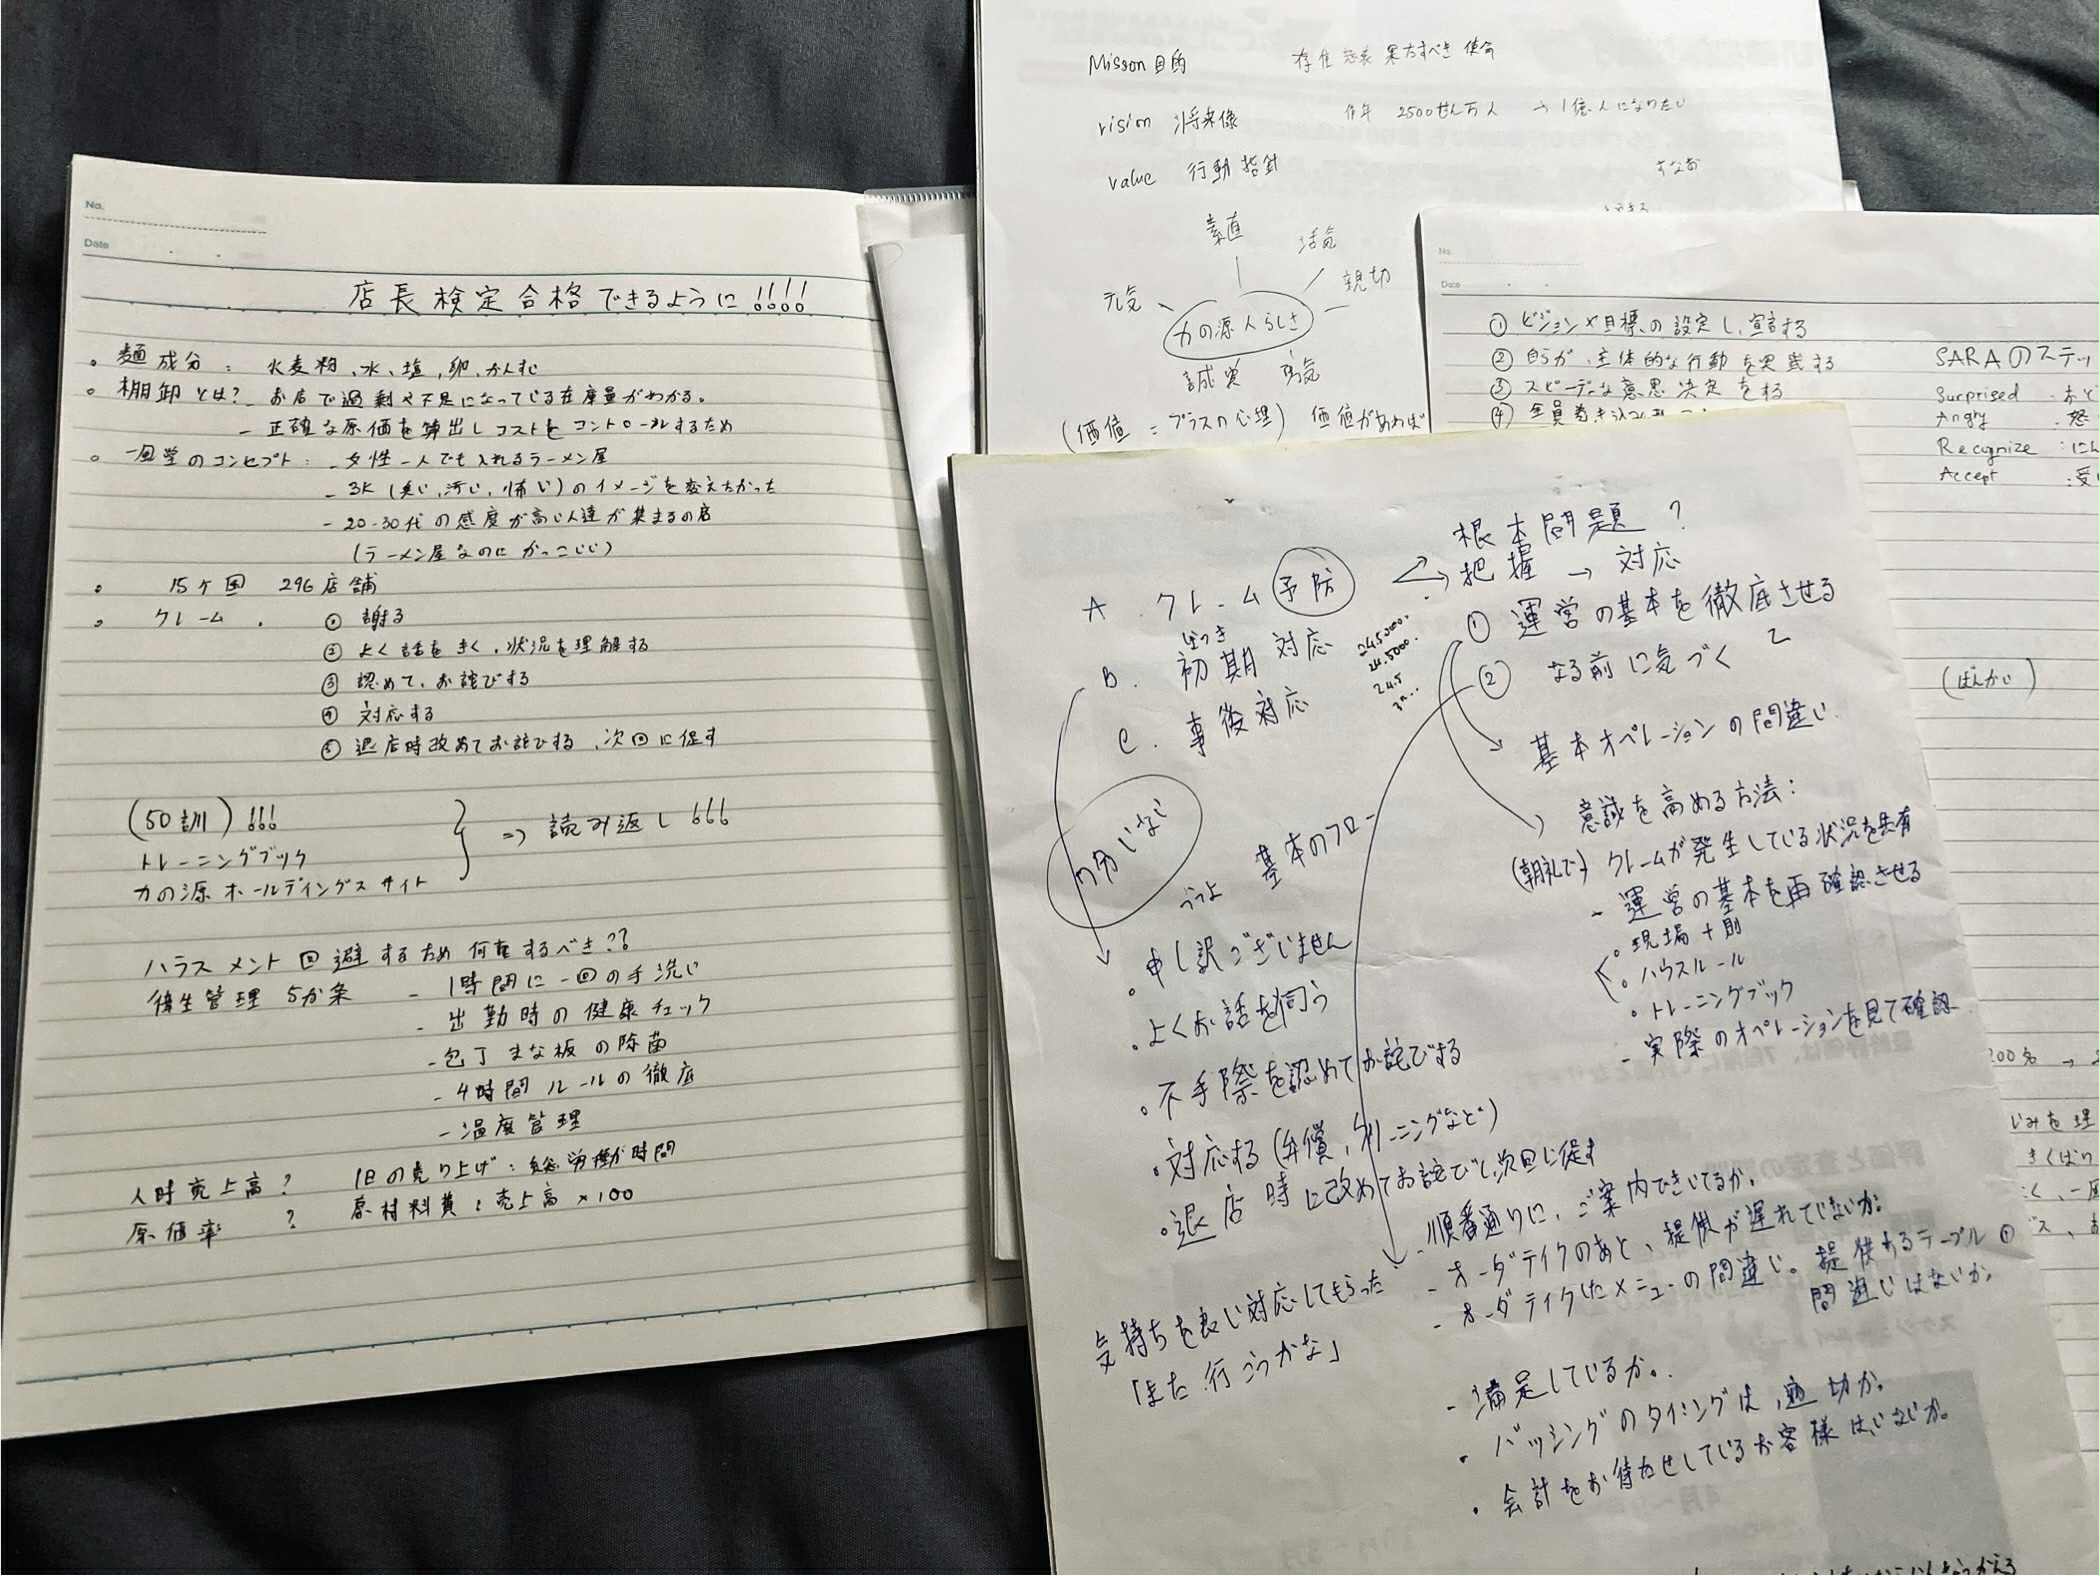 No.
Date
店長検定合格できるように!!!!
。麺成分: 水、塩、卵、かんすい
。棚卸とは? - お店で過剰や不足になっている在庫量がわかる。
- 正確な原価を算出しコストをコントロールするため
。一風堂のコンセプト: - 女性一人でも入れるラーメン屋
- 3K (臭い、汚い、怖い)のイメージを変えたかった
- 20-30代の感度が高い人達が集まるの店
(ラーメン屋なのに かっこいい)
。 15ヶ国 296店舗
。 クレーム . ① 謝る
② よく話をきく、状況を理解する
③ 認めて、お詫びする
④ 対応する
⑤ 退店時改めてお詫びする、次回に促す
(50訓) !!!
トレーニングブック
力の源ホールディングスサイト
⇒ 読み返し !!!
ハラスメント回避するため何をするべき??
衛生管理 5か条 - 1時間に一回の手洗い
- 出勤時の健康チェック
- 包丁まな板の除菌
- 4時間ルールの徹底
- 温度管理
人時売上高? 1日の売り上げ: 総労働時間
原価率 ? 原材料費: 売上高 ×100
Misson 目的 存在意義 果たすべき使命
vision 将来像 昨年 2500せん万人 → 1億人になりたい
value 行動指針
すなお
素直
活気
元気
親切
力の源人らしさ
誠実 勇気
(価値 = プラスの心理) 価値があれば
No.
Date
① ビジョンや目標の設定し、宣言する
② 自らが、主体的な行動を実践する
③ スピーディな意思決定をする
④ 全員巻き込み
SARAのステッ
Surprised . おど
Angry . 怒
Recognize : にん
Accept . 受
(ばんかい)
200名 →
A . クレーム予防
根本問題 ?
把握 → 対応
しょき
B . 初期対応
C . 事後対応
245000.
24.5000.
24.5
① 運営の基本を徹底させる
② なる前に気づく
基本オペレーションの間違い.
意識を高める方法:
(朝礼で) クレームが発生している状況を共有
- 運営の基本を再確認させる
。現場十則
。ハウスルール
。トレーニングブック
- 実際のオペレーションを見て確認
基本のフロー
。申し訳ございません
。よくお話を伺う
。不手際を認めてお詫びする
。対応する (弁償、クリーニングなど)
。退店時に改めてお詫びし、次回に促す
気持ちを良い対応してもらった
「また行こうかな」
- 順番通りに、ご案内できているか。
- オーダテイクのあと、提供が遅れていないか。
- オーダテイクしたメニューの間違い。提供するテーブルの
間違いはないか。
- 満足しているか。
. バッシングのタイミングは、適切か。
. 会計をお待たせしているお客様はいないか。